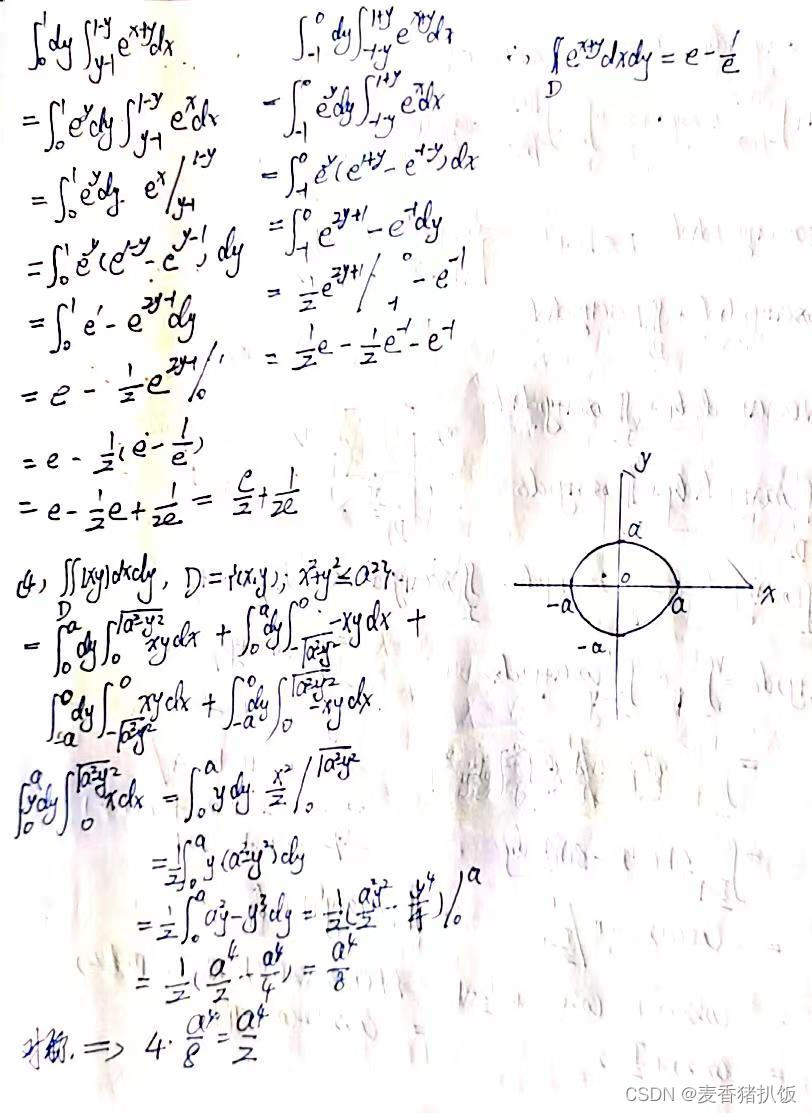 ∫₀¹dy∫_{y-1}^{1-y}e^{x+y}dx
=∫₀¹e^y dy∫_{y-1}^{1-y}e^x dx
=∫₀¹e^y dy· e^x/_{y-1}^{1-y}
=∫₀¹e^y(e^{1-y}-e^{y-1})dy
=∫₀¹e¹-e^{2y-1}dy
=e-1/2e^{2y-1}/₀¹
=e-1/2(e-1/e)
=e-1/2e+1/2e=e/2+1/2e
∫_{-1}^0dy∫_{-1-y}^{1+y}e^{x+y}dx
=∫_{-1}^0e^y dy∫_{-1-y}^{1+y}e^x dx
=∫_{-1}^0e^y(e^{1+y}-e^{-1-y})dx
=∫_{-1}^0e^{2y+1}-e^{-1}dy
=1/2e^{2y+1}/_{-1}^0-e^{-1}
=1/2e-1/2e^{-1}-e^{-1}
∴∬_D e^{x+y}dxdy=e-1/e
4, ∬_D|xy|dxdy, D={(x,y); x²+y²≤a²}
=∫₀^a dy∫₀^{√a²-y²}xydx+∫₀^a dy∫_{-√a²-y²}^0-xydx+
∫_{-a}^0dy∫_{-√a²-y²}^0xydx+∫_{-a}^0dy∫₀^{√a²-y²}-xydx
∫₀^a ydy∫₀^{√a²-y²}xdx=∫₀^a ydy x²/2/₀^{√a²-y²}
=1/2∫₀^a y(a²-y²)dy
=1/2∫₀^a a²y-y³dy=1/2(a²y²/2-y⁴/4)/₀^a
=1/2(a⁴/2-a⁴/4)=a⁴/8
对称.⇒4·a⁴/8=a⁴/2
y
a
-a
o
a
x
-a
CSDN @麦香猪扒饭